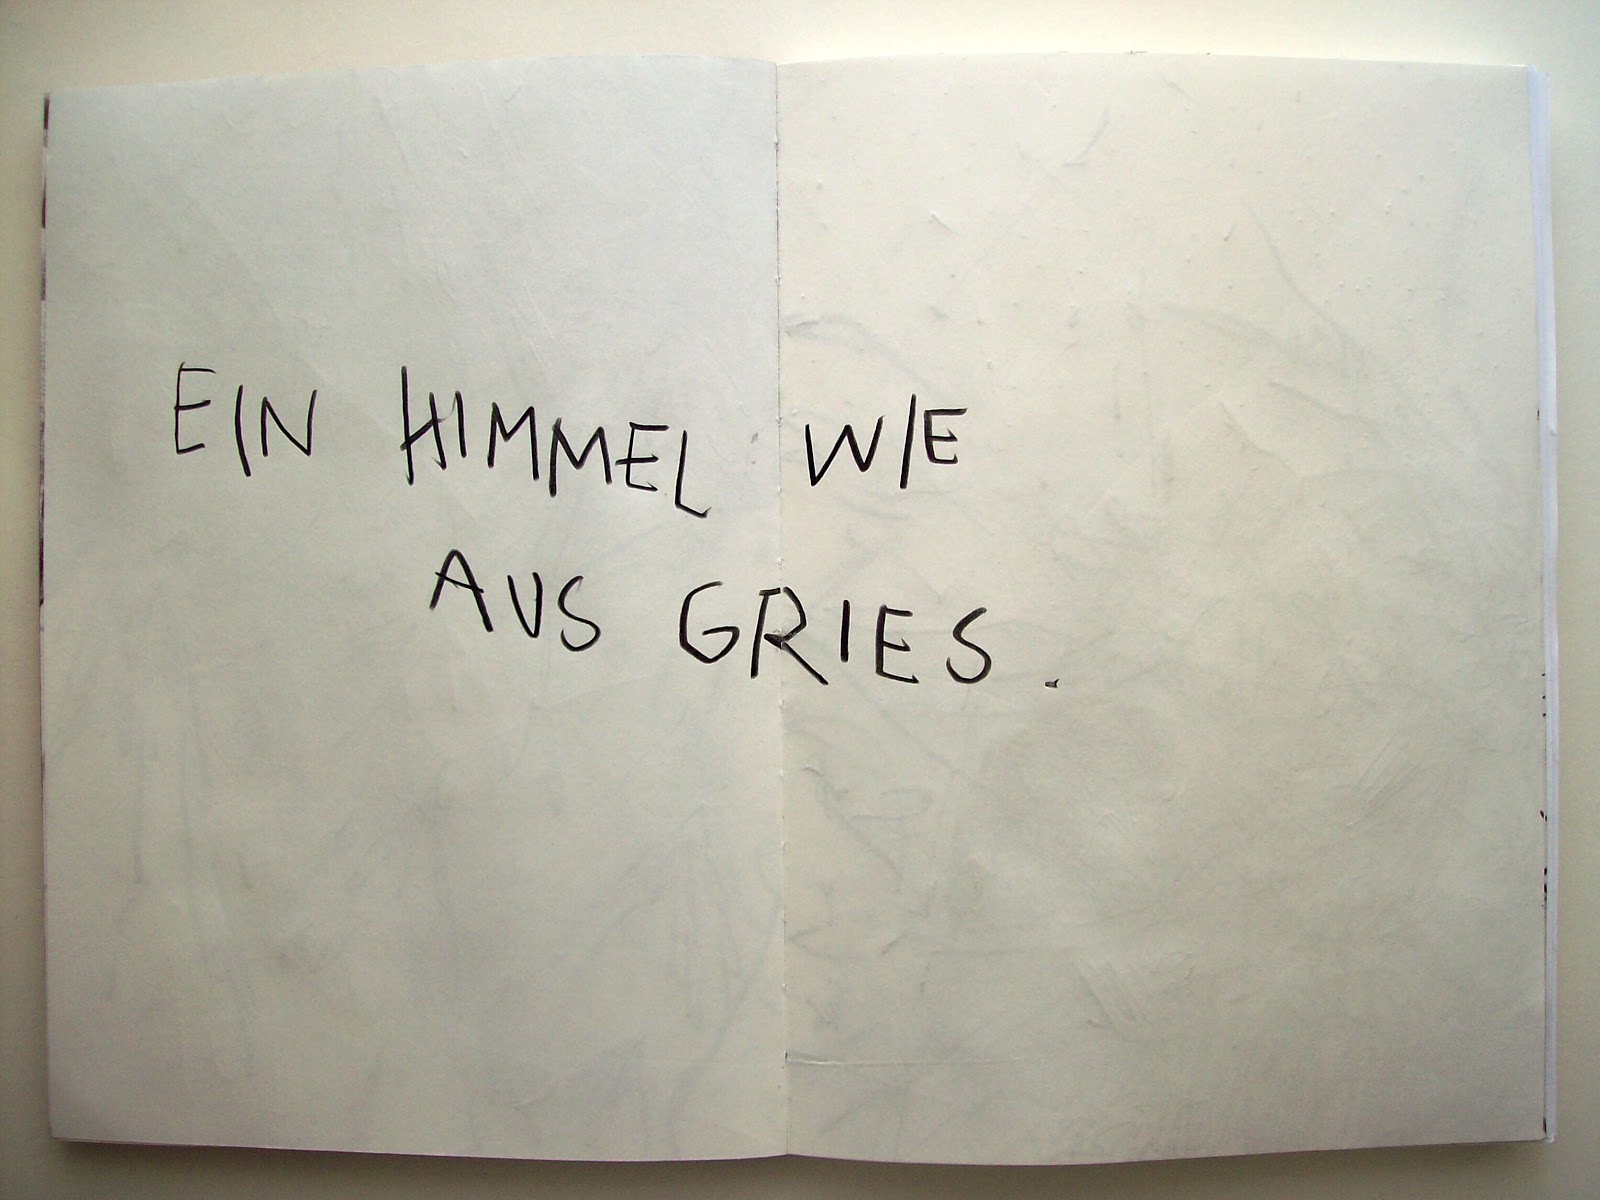 EIN HIMMEL WIE
AUS GRIES.